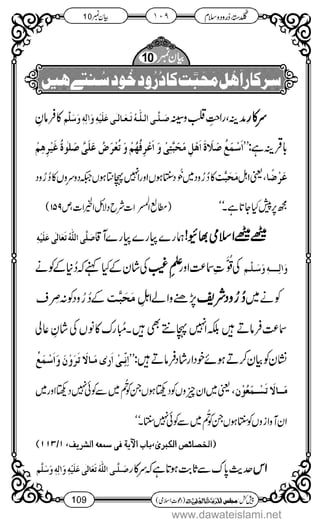 بیان نمبر 10 ۱۰۹ گلدستۂ درود و سلام
بیان نمبر 10
سرکار اَھْلِ مَحَبَّت کا دُرُود خُود سُنتے ھیں
سرکارِ مدینہ، راحتِ قلب و سینہ صَلَّی اللّٰہُ تَعَالٰی عَلَیْہِ وَاٰلِہٖ وَسَلَّم کا فرمانِ
باقرینہ ہے: ”اَسْمَعُ صَلَاةَ اَھْلِ مَحَبَّتِیْ وَ اَعْرِفُھُمْ وَ تُعْرَضُ عَلَیَّ صَلٰوةُ غَیْرِھِمْ
عَرْضًا، یعنی اہلِ مَحَبَّت کا دُرُود میں خود سنتا ہوں اور انہیں پہچانتا ہوں جبکہ دوسروں کا دُرُود
مجھ پر پیش کیا جاتا ہے۔“ (مطالع المسرات شرح دلائل الخیرات، ص ۱۵۹)
میٹھے میٹھے اسلامی بھائیو! ہمارے پیارے پیارے آقا صَلَّی اللّٰہُ تَعَالٰی عَلَیْہِ
وَاٰلِہٖ وَسَلَّم کی قُوَّتِ سماعت اور علمِ غیب کی شان کے کیا کہنے کہ دُنیا کے کونے
کونے میں دُرُود شریف پڑھنے والے اہلِ مَحَبَّت کے دُرُود کو نہ صِرف
سماعت فرماتے ہیں بلکہ انہیں پہچانتے بھی ہیں۔ مُبارَک کانوں کی شانِ عالی
نشان کو بیان کرتے ہوئے خود ارشاد فرماتے ہیں: ”اِنِّیْ اَرٰی مَالَا تَرَوْنَ وَاَسْمَعُ
مَالَا تَسْمَعُوْنَ، یعنی میں ان چیزوں کو دیکھتا ہوں جن کو تم میں سے کوئی نہیں دیکھتا اور میں
ان آوازوں کو سنتا ہوں جن کو تم میں سے کوئی نہیں سنتا۔“
(الخصائص الکبریٰ، باب الآیة فی سمعه الشریف، ۱/۱۱۳)
اس حدیثِ پاک سے ثابت ہوتا ہے کہ سرکار صَلَّی اللّٰہُ تَعَالٰی عَلَیْہِ وَاٰلِہٖ وَسَلَّم
109 پیش کش: مجلس المدینۃ العلمیۃ (دعوتِ اسلامی)
www.dawateislami.net